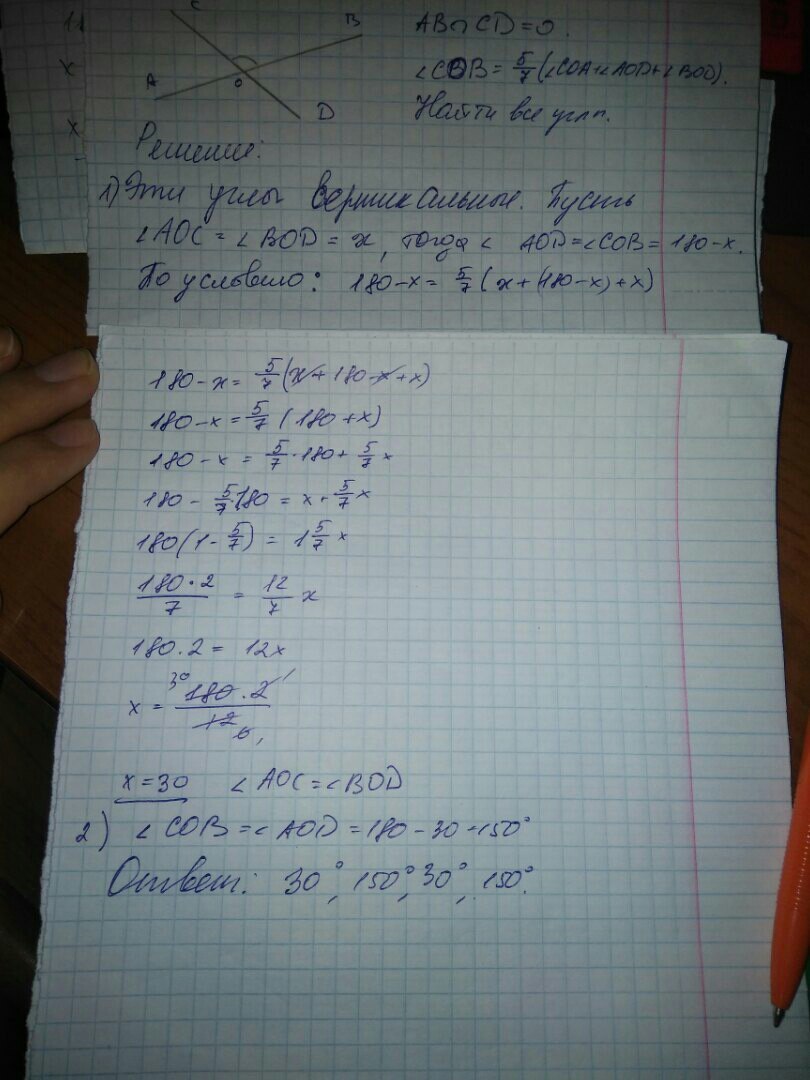 C
B
A
O
D
AB∩CD=O.
∠COB=5/7(∠COA+∠AOD+∠BOD).
Найти все углы.
Решение:
1) Эти углы вертикальные. Пусть
∠AOC=∠BOD=x, тогда ∠AOD=∠COB=180-x.
По условию: 180-x=5/7(x+(180-x)+x)
180-x=5/7(x+180-x+x)
180-x=5/7(180+x)
180-x=5/7·180+5/7x
180-5/7·180=x+5/7x
180(1-5/7)=1 5/7x
180·2/7=12/7x
180·2=12x
x=30 180·2 1/12 6,
x=30 ∠AOC=∠BOD
2) ∠COB=∠AOD=180-30=150°
Ответ: 30°, 150°, 30°, 150°.